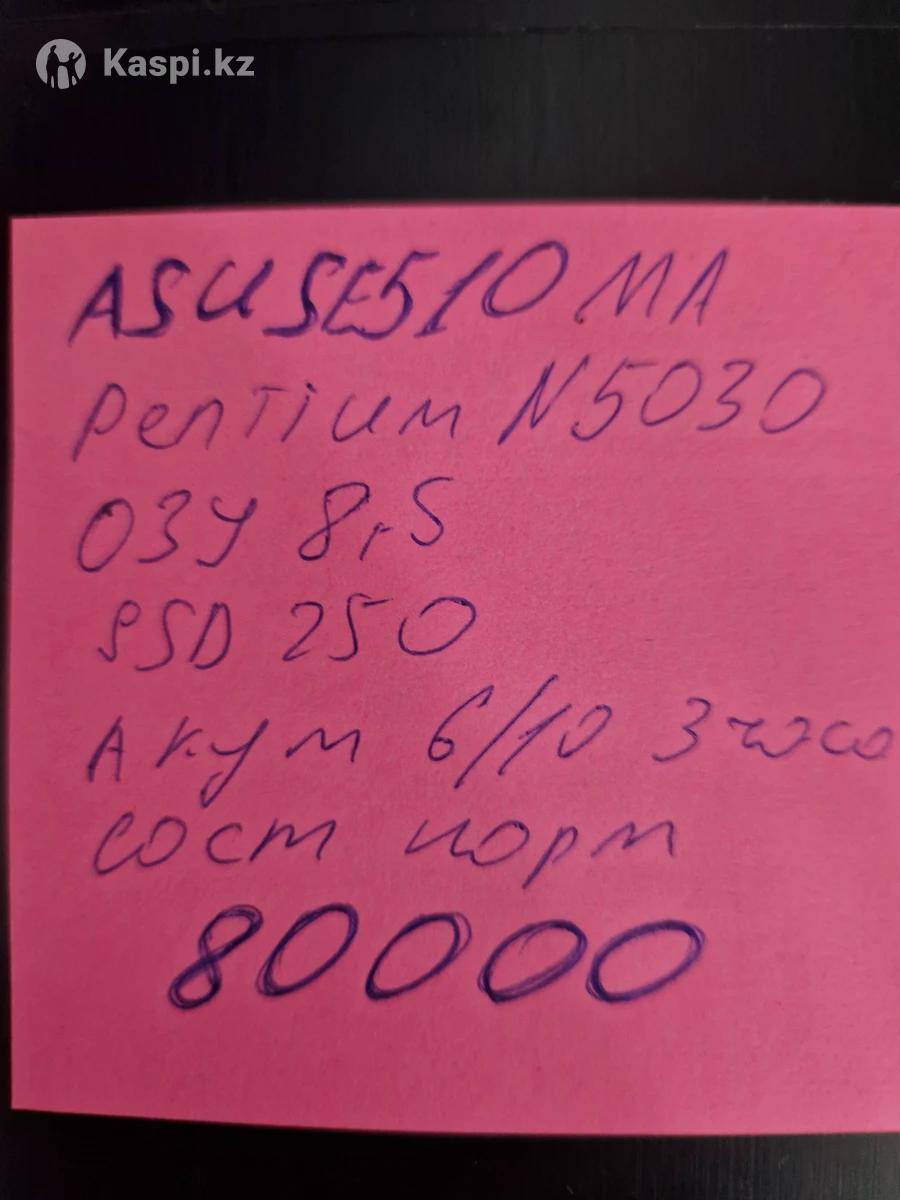 Kaspi.kz
ASUSE510 MA
Pentium N5030
ОЗУ 8гб
SSD 250
Акум 6/10 3 часа
сост норм
80000